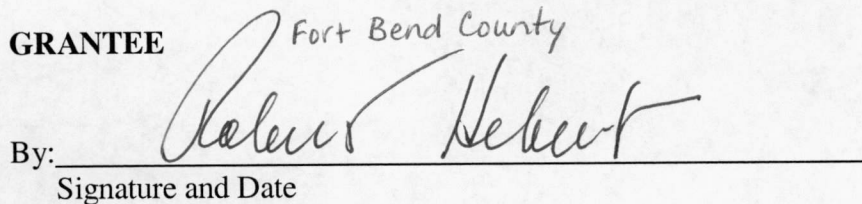 GRANTEE Fort Bend County
By: Robert Hebert
Signature and Date